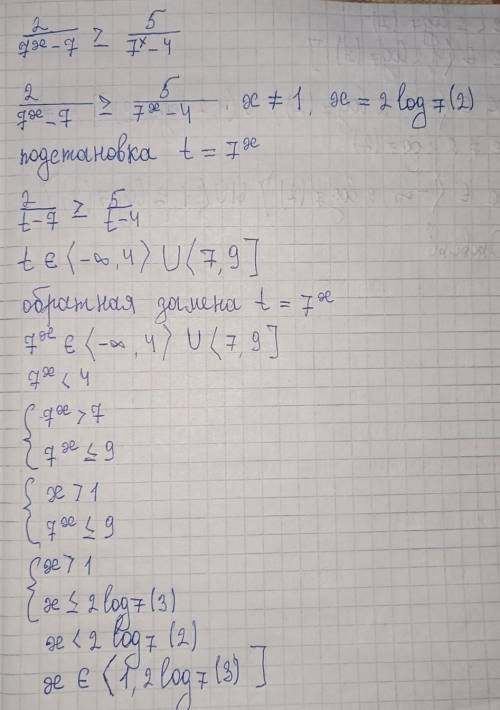 2/(7^x - 7) ≥ 5/(7^x - 4)
2/(7^x - 7) ≥ 5/(7^x - 4), x ≠ 1, x = 2 log7 (2)
подстановка t = 7^x
2/(t-7) ≥ 5/(t-4)
t ∈ ⟨-∞, 4⟩ ∪ ⟨7, 9]
обратная замена t = 7^x
7^x ∈ ⟨-∞, 4⟩ ∪ ⟨7, 9]
7^x < 4
{ 7^x > 7
7^x ≤ 9
{ x > 1
7^x ≤ 9
{ x > 1
x ≤ 2 log7 (3)
x < 2 log7 (2)
x ∈ ⟨1, 2 log7 (3)]